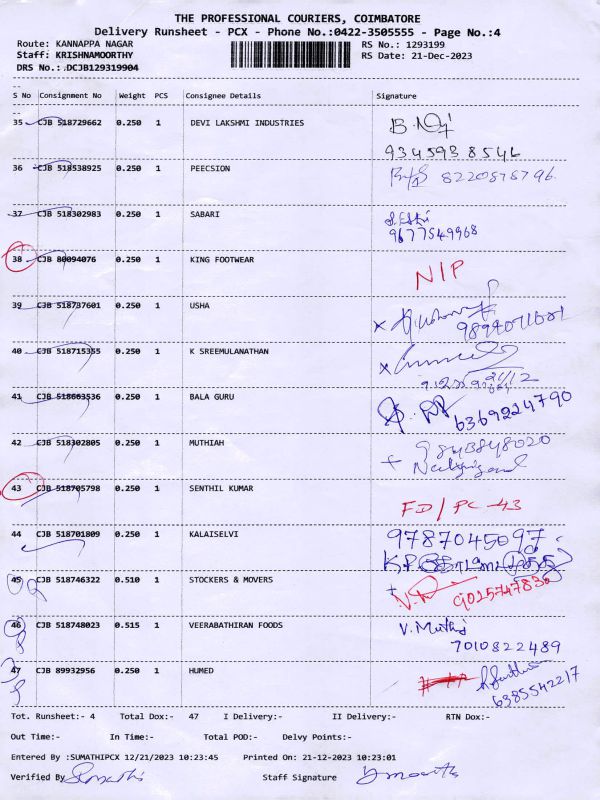 THE PROFESSIONAL COURIERS, COIMBATORE
Delivery Runsheet - PCX - Phone No.:0422-3505555 - Page No.:4
Route: KANNAPPA NAGAR RS No.: 1293199
Staff: KRISHNAMOORTHY RS Date: 21-Dec-2023
DRS No.:DCJB129319904
S No Consignment No Weight PCS Consignee Details Signature
35 CJB 518729662 0.250 1 DEVI LAKSHMI INDUSTRIES
9345938546
36 CJB 518538925 0.250 1 PEECSION 8220878796
37 CJB 518302983 0.250 1 SABARI
9677549968
38 CJB 80094076 0.250 1 KING FOOTWEAR N/P
39 CJB 518737601 0.250 1 USHA
40 CJB 518715355 0.250 1 K SREEMULANATHAN
21/12
41 CJB 518663536 0.250 1 BALA GURU 6369224790
42 CJB 518302805 0.250 1 MUTHIAH 9843848020
43 CJB 518705798 0.250 1 SENTHIL KUMAR
FD/PC-43
44 CJB 518701809 0.250 1 KALAISELVI 9787045097
45 CJB 518746322 0.510 1 STOCKERS & MOVERS
46 CJB 518748023 0.515 1 VEERABATHIRAN FOODS V. Muthu
7010822489
47 CJB 89932956 0.250 1 HUMED
6385542217
Tot. Runsheet:- 4 Total Dox:- 47 I Delivery:- II Delivery:- RTN Dox:-
Out Time:- In Time:- Total POD:- Delvy Points:-
Entered By :SUMATHIPCX 12/21/2023 10:23:45 Printed On: 21-12-2023 10:23:01
Verified By Staff Signature